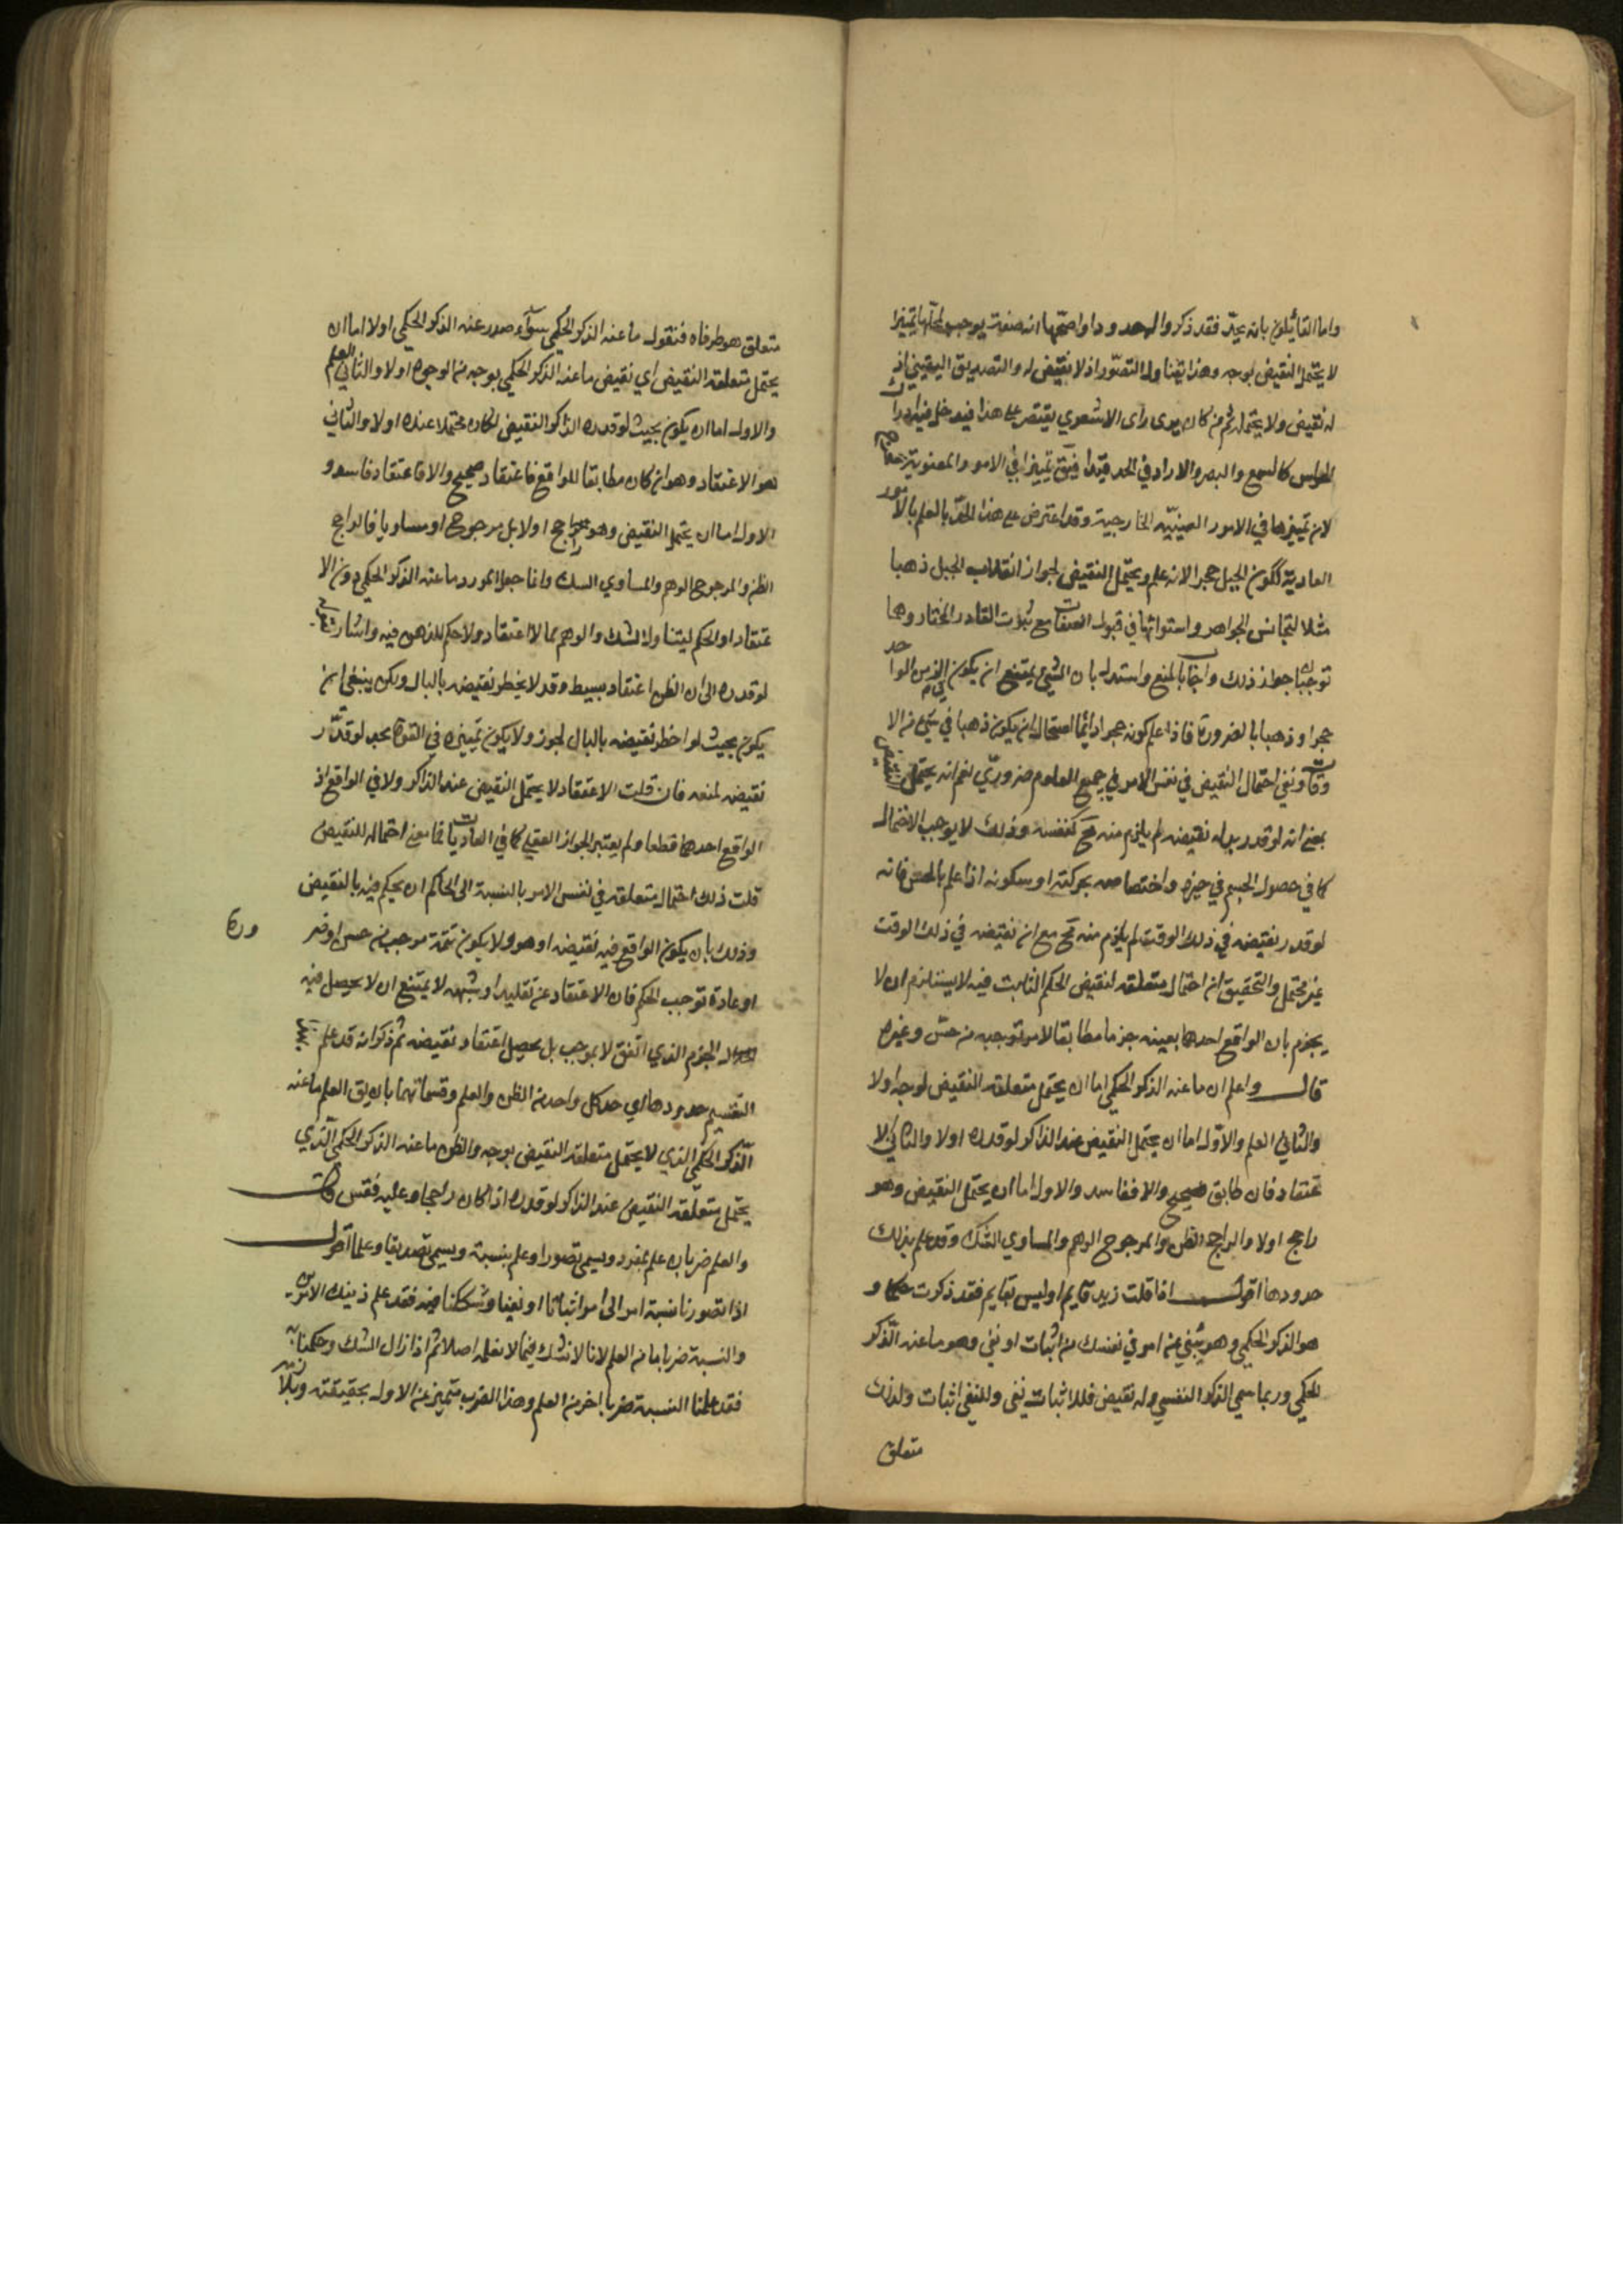 واما القائلون بانه يحد فقد ذكروا له حدودا واصحها انه صفة يوجب لمحلها تميزا
لا يحتمل النقيض بوجه وهذا يتناول التصور اذ لا نقيض له والتصديق اليقيني اذ
له نقيض ولا يحتمله ثم من كان يرى راى الاشعري يقتصر على هذا فيدخل فيه ادراك
الحواس كالسمع والبصر والا زاد في الحد قيدا فيق تميزا في الامور المعنوية
لان تميزها في الامور العينية الخارجية وقد اعترض على هذا الحد بالعلم بالامور
العادية ككون الجبل حجرا لانه علم ويحتمل النقيض لجواز انقلاب الجبل ذهبا
مثلا لتجانس الجواهر واستوائها في قبول الصفات مع ثبوت القادر المختار وهما
توجبان جواز ذلك واجاب بالمنع واستدل بان الشيء يمتنع ان يكون في الزمن الواحد
حجرا وذهبا بالضرورة فاذا علم كونه حجرا دائما استحال ان يكون ذهبا في شيء من الا
وقات ونفي احتمال النقيض في نفس الامر في جميع العلوم ضروري نعم انه يحتمل النقيض
بمعنى انه لو قدر بدله نقيضه لم يلزم منه مح لنفسه وذلك لا يوجب الاحتمال
كما في حصول الجسم في حيزه واختصاصه بحركته او سكونه اذا علم بالحس فانه
لو قدر نقيضه في ذلك الوقت لم يلزم منه مح مع ان نقيضه في ذلك الوقت
غير محتمل والتحقيق ان احتمال متعلقه لنقيض الحكم الثابت فيه لا يستلزم ان لا
يجزم بان الواقع احدهما بعينه جزما مطابقا لامر توجبه من حس وغيره
قال واعلم ان ما عنه الذكر الحكمي اما ان يحتمل متعلقه النقيض بوجه اولا
والثاني العلم والاول اما ان يحتمل النقيض عند الذاكر لو قدره اولا والثاني الا
عتقاد فان طابق فصحيح والا ففاسد والاول اما ان يحتمل النقيض وهو
راجح اولا والراجح الظن والمرجوح الوهم والمساوي الشك وقد علم بذلك
حدودها اقول اذا قلت زيد قايم او ليس بقايم فقد ذكرت حكما و
هو الذكر الحكمي وهو ينبي عن امر في نفسك من اثبات او نفي وهو ما عنه الذكر
الحكمي وربما سمي الذكر النفسي وله نقيض فللاثبات نفي وللنفي اثبات ولذلك
متعلق
متعلق هو طرفاه فنقول ما عنه الذكر الحكمي سواء صدر عنه الذكر الحكمي اولا اما ان
يحتمل متعلقه النقيض اي نقيض ما عنه الذكر الحكمي بوجه من الوجوه اولا والثاني العلم
والاول اما ان يكون بحيث لو قدره الذاكر النقيض لكان محتملا عنده اولا والثاني
هو الاعتقاد وهو ان كان مطابقا للواقع فاعتقاد صحيح والا فاعتقاد فاسد و
الاول اما ان يحتمل النقيض وهو راجح اولا بل مرجوح او مساو يا فالراجح
الظن والمرجوح الوهم والمساوي الشك وانما جعل المورد ما عنه الذكر الحكمي دون الا
عتقاد او الحكم ليتناول الشك والوهم مما لا اعتقاد ولا حكم للذهن فيه واشار
لو قدره الى ان الظن اعتقاد بسيط وقد لا يخطر نقيضه بالبال ولكن ينبغي ان
يكون بحيث لو اخطر نقيضه بالبال لجوزه ولا يكون تميزه في القوة بحد لو قدر
نقيضه لمنعه فان قلت الاعتقاد لا يحتمل النقيض عند الذاكر ولا في الواقع اذ
الواقع احدهما قطعا ولم يعتبر الجواز العقلي كما في العاديات فما معنى احتماله للنقيض
قلت ذلك احتمال متعلقه في نفس الامر بالنسبة الى الحاكم ان يحكم فيه بالنقيض
وذلك بان يكون الواقع فيه نقيضه او هو ولا يكون ثمة موجب من حس او ضرورة
او عادة توجب الحكم فان الاعتقاد عن تقليد او شبهة لا يمتنع ان لا يحصل فيه
الجزم الذي اتفق لا بموجب بل يحصل اعتقاد نقيضه ثم ذكر انه قد علم
التقسيم حدودها اي حد كل واحد من الظن والعلم وقسماتهما بان يق العلم ما عنه
الذكر الحكمي الذي لا يحتمل متعلقه النقيض بوجه والظن ما عنه الذكر الحكمي الذي
يحتمل متعلقه النقيض عند الذاكر لو قدره اذا كان راجحا وعليه فقس قال
والعلم ضربان علم بمفرد ويسمى تصورا وعلم بنسبة ويسمى تصديقا وعلما اقول
اذا تصورنا نسبة امر الى امر اثباتا او نفيا وشككنا فيه فقد علم ذينك الامرين
والنسبة ضربا ما من العلم لانا لا نشك فيما لا نعلمه اصلا ثم اذا زال الشك وحكمنا به
فقد علمنا النسبة ضربا اخر من العلم وهذا الضرب متميز عن الاول بحقيقته